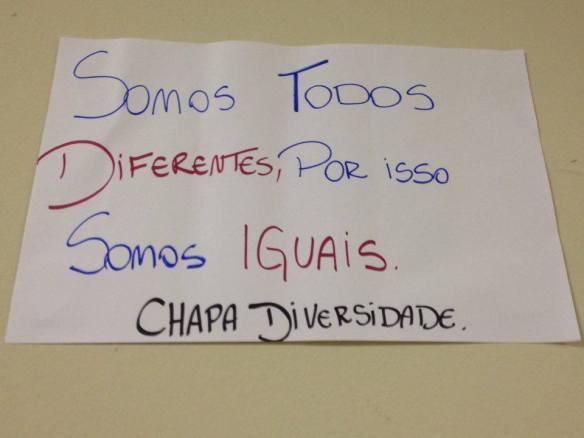 Somos Todos
Diferentes, Por isso
Somos IGUAIS.
CHAPA DIVERSIDADE.